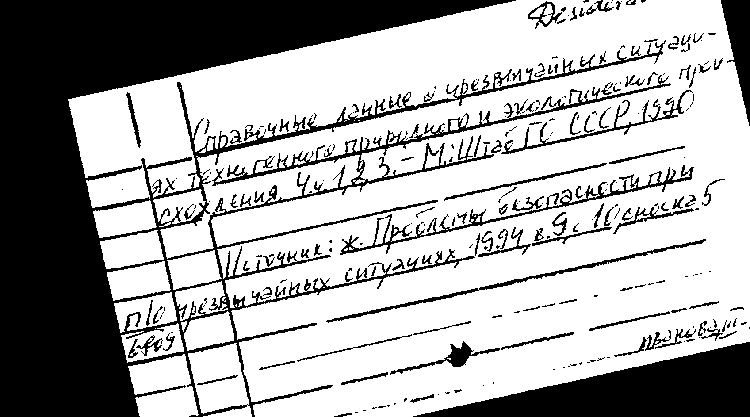 Desidera
Справочные данные о чрезвычайных ситуаци-
ях техногенного природного и экологического прои-
схождения. Ч.ч 1,2,3. – М.: Штаб ГО СССР, 1990
Источник: ж. Проблемы безопасности при
чрезвычайных ситуациях, 1994, в.9, с 10, сноска 5
п/о